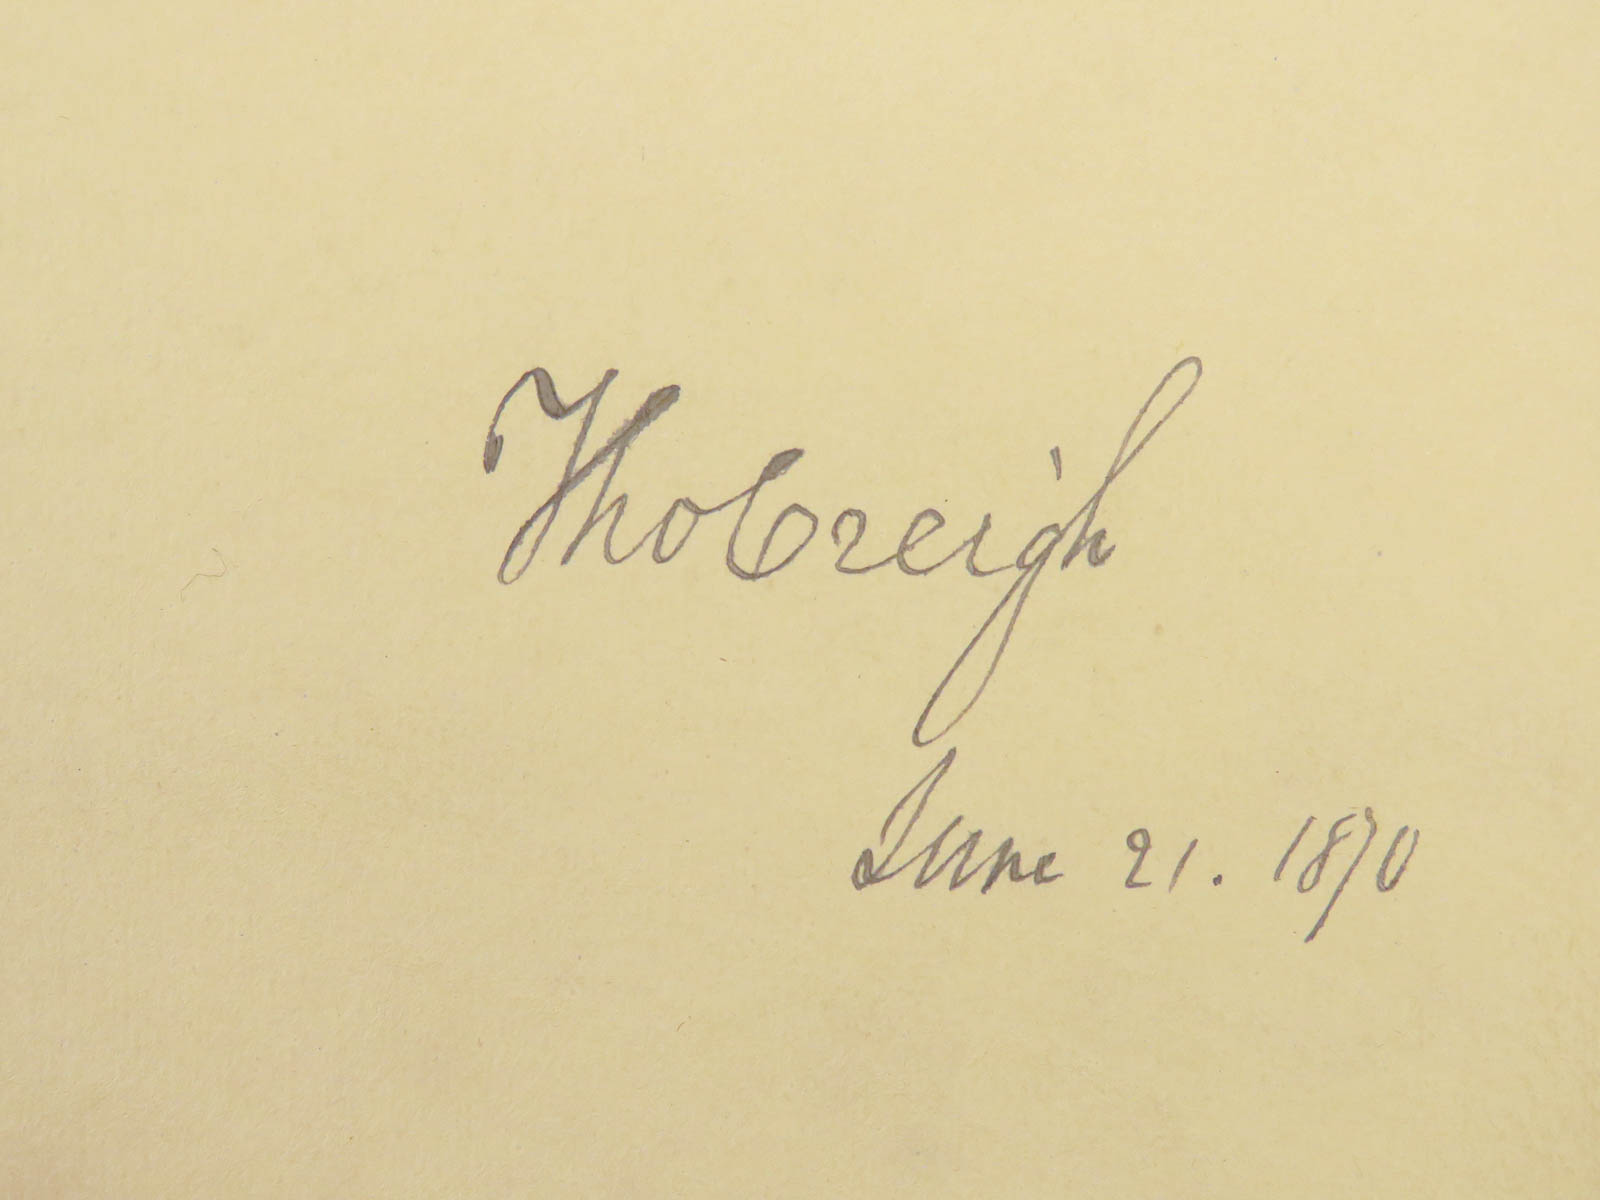 Tho Creigh
June 21. 1870